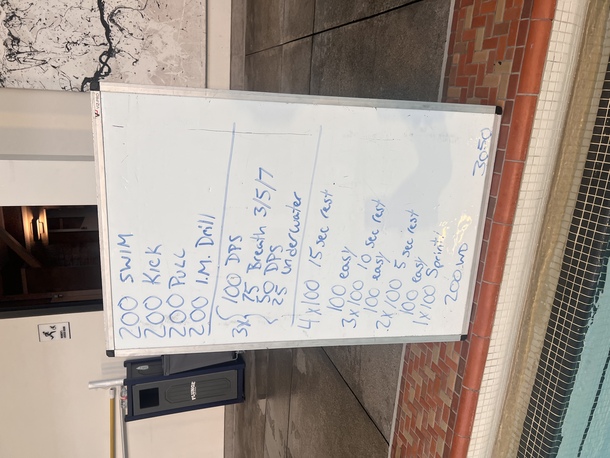 200 SWIM
200 Kick
200 PULL
200 I.M. Drill
3x { 100 DPS
75 Breath 3/5/7
50 DPS
25 underwater
4x100 15 sec rest
100 easy
3x100 10 sec rest
100 easy
2x100 5 sec rest
100 easy
1x100 Sprint!
200 WD
3050